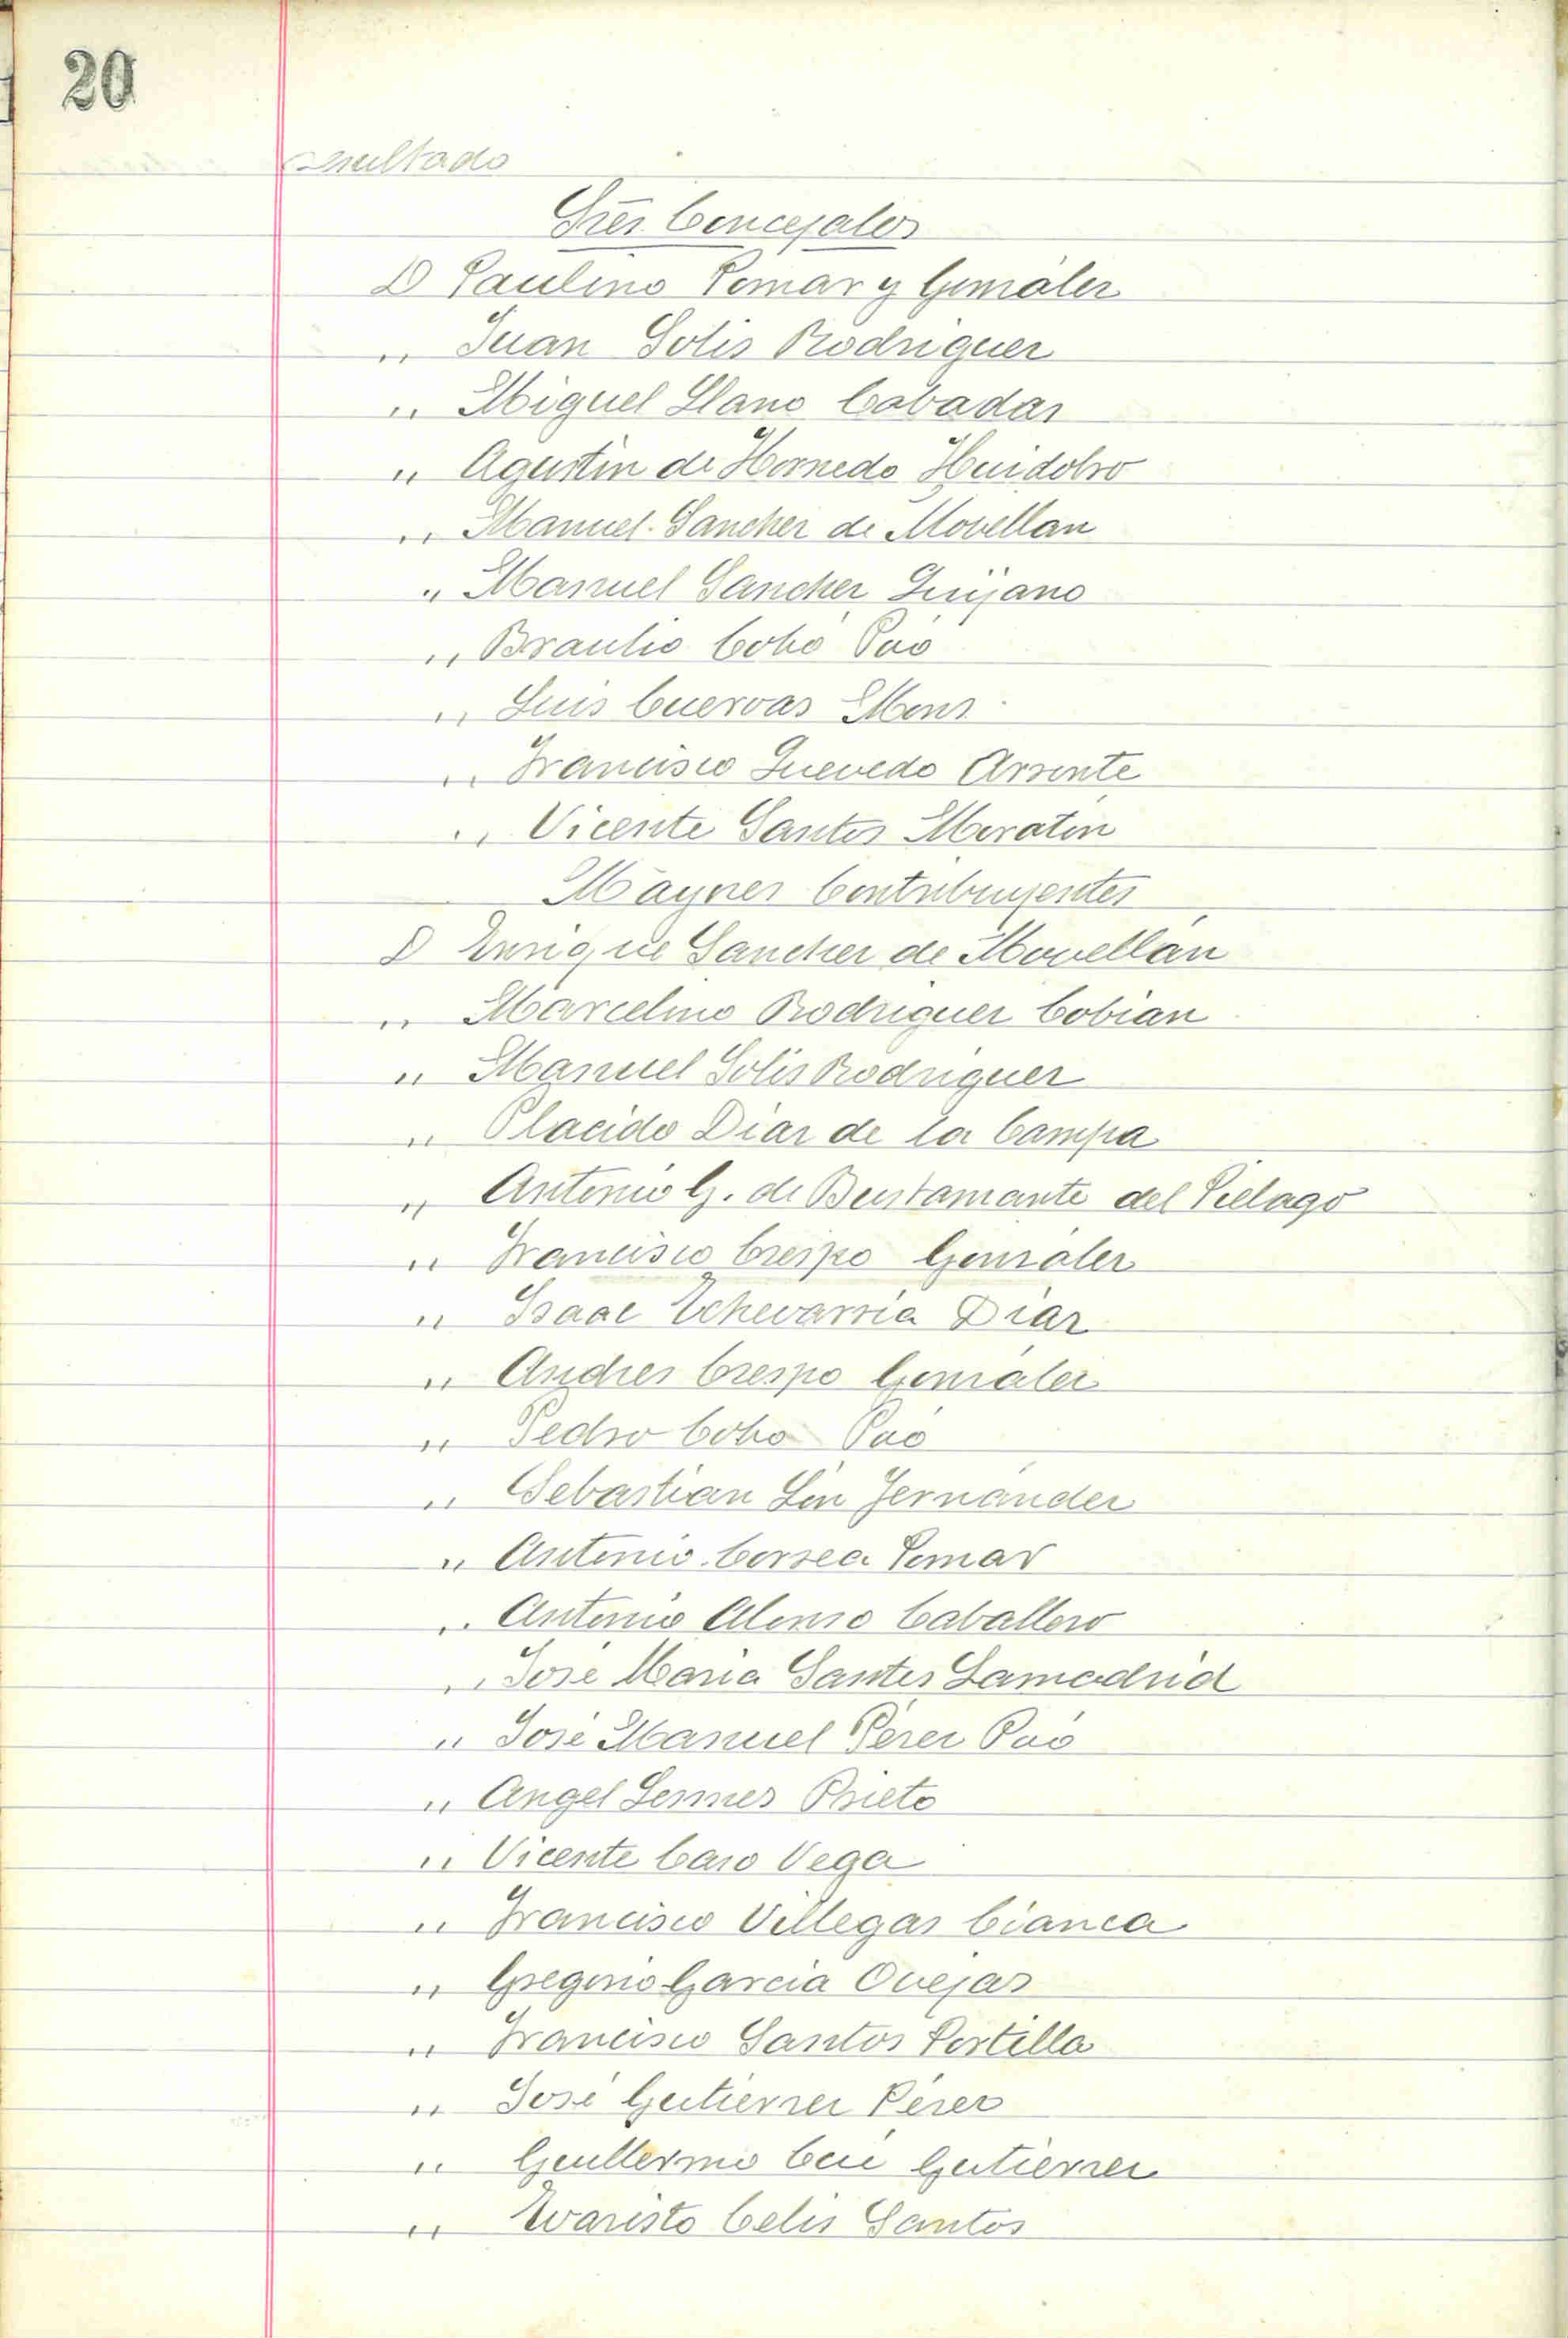 20
resultado
Sres. Concejales
D Paulino Pomar y Gonzáler
" Juan Solis Rodriguez
" Miguel Llano Cabadas
" Agustin de Hornedo Huidobro
" Manuel Sanchez de Movellan
" Manuel Sanchez Quijano
" Braulio Cobo Poo
" Luis Cuervas Mons
" Francisco Quevedo
" Vicente Santos Moratin
Mayores Contribuyentes
D Enrique Sanchez de Movellán
" Marcelino Rodriguez Cobian
" Manuel Solis Rodriguez
" Placido Diaz de la Campa
" Antonio G. de Bustamante del Piélago
" Francisco Crespo Gonzalez
" Isaac Echevarria Diaz
" Andres Crespo González
" Pedro Cobo Poó
" Sebastian Fernández
" Antonio Correa Pomar
" Antonio Alonso Caballero
" José Maria Santos Lamadrid
" José Manuel Pérez Poó
" Angel Prieto
" Vicente Caso Vega
" Francisco Villegas Cianca
" Gregorio Garcia Ovejas
" Francisco Santos Portilla
" José Gutierrez Pérez
" Guillermo Gutiérrez
" Evaristo Celis Santos